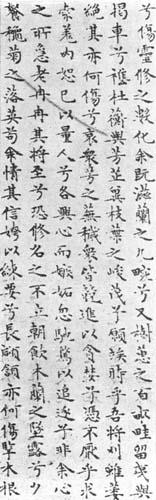 兮傷靈修之數化余既滋蘭之九畹兮又樹蕙之百畝畦留夷與
揭車兮雜杜衡與芳芷冀枝葉之峻茂兮願竢時乎吾將刈雖萎
絕其亦何傷兮哀衆芳之蕪穢衆皆競進以貪婪兮憑不猒乎求
索羌内恕己以量人兮各興心而嫉妬忽馳騖以追逐兮非余心
之所急老冉冉其將至兮恐修名之不立朝飲木蘭之墜露兮夕
餐秋菊之落英苟余情其信姱以練要兮長顑頷亦何傷擥木根